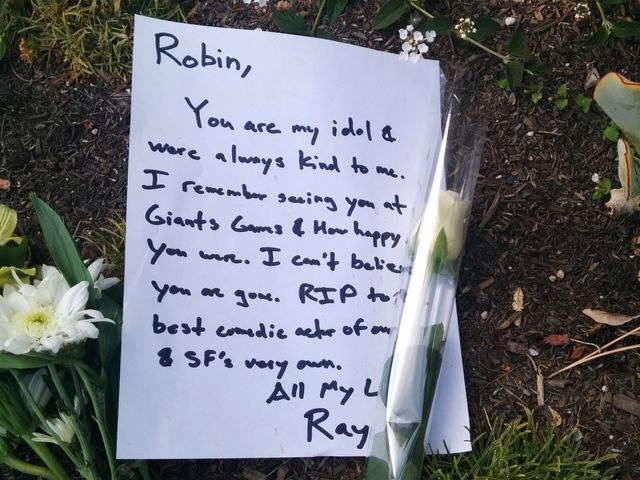 Robin,
You are my idol &
were always kind to me.
I remember seeing you at
Giants Games & How happy
you were. I can't believe
you are gone. RIP to
best comedic actor of our
& SF's very own.
All My L
Ray